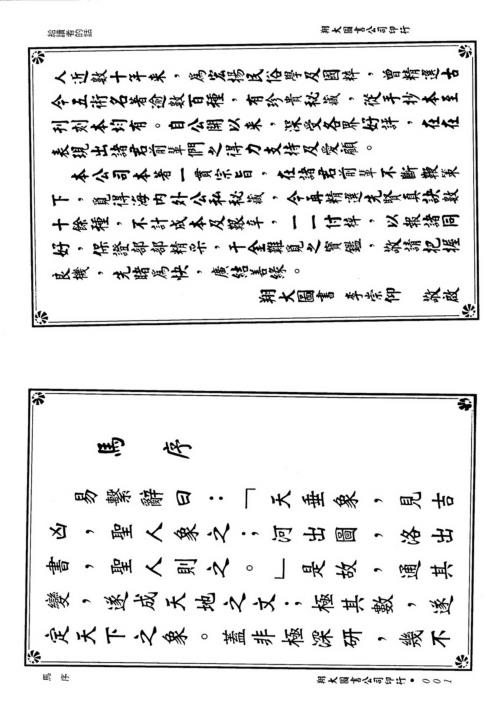 給讀者的話
翔大圖書公司印行
人近數十年來，為宏揚民俗學及國粹，曾精選古
今五術名著逾數百種，有珍貴秘藏，從手抄本至
刊刻本均有。自公開以來，深受各界好評，在在
表現出諸君前輩們之得力支持及愛顧。
本公司本著一貫宗旨，在諸君前輩不斷鞭策
下，覓得海內外公私秘藏，今再精選先賢真訣數
十餘種，不計成本及艱辛，一一付梓，以報諸同
好，保證部部精采，千金難覓之寶鑑，敬請把握
良機，先睹為快，廣結善緣。
翔大圖書 李崇仰 敬啟
馬序
易繫辭曰：「天垂象，見吉
凶，聖人象之；河出圖，洛出
書，聖人則之。」是故，通其
變，遂成天地之文；極其數，遂
定天下之象。蓋非極深研，幾不
馬序
翔大圖書公司印行•001